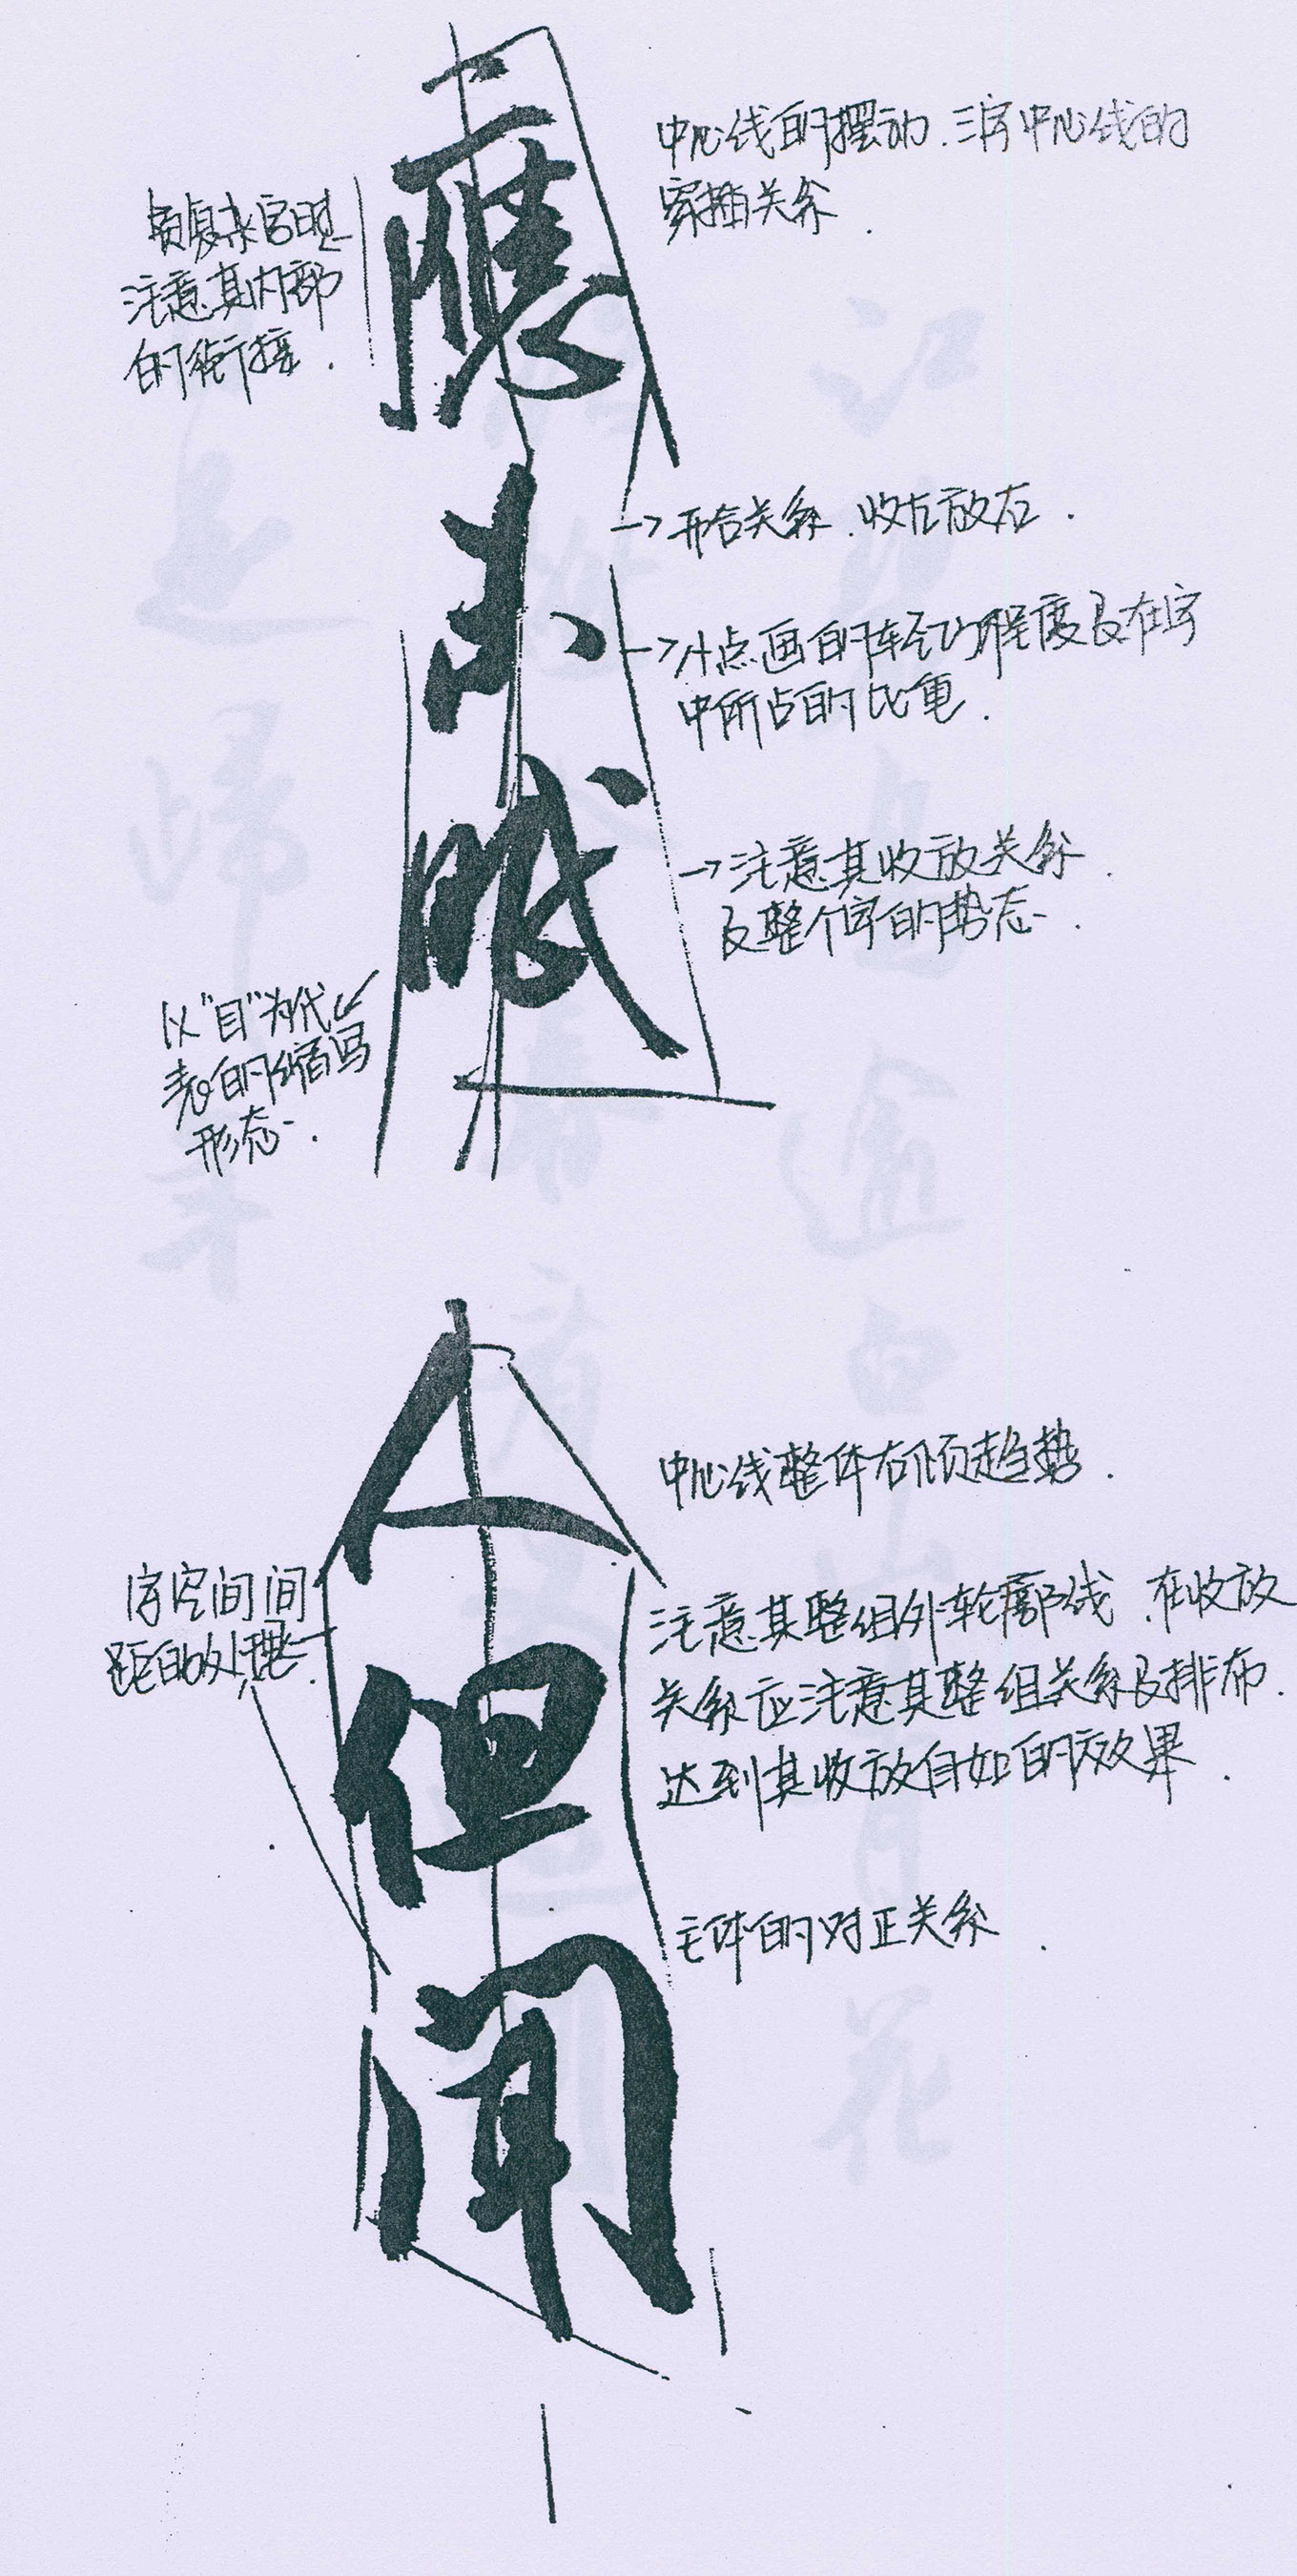 應
未
眠
人
但
聞
中心线的摆动.三字中心线的
穿插关系.
注意其内部
的衔接.
→开合关系.收左放右.
→小点画的轻巧程度及在字
中所占的比重.
→注意其收放关系.
及整个字的势态.
以"目"为代
表的缩写
形态.
中心线整体右倾趋势.
字空间间
距的处理.
注意其整组外轮廓线.在收放
关系应注意其整组关系及排布.
达到其收放自如的效果.
主体的对正关系.